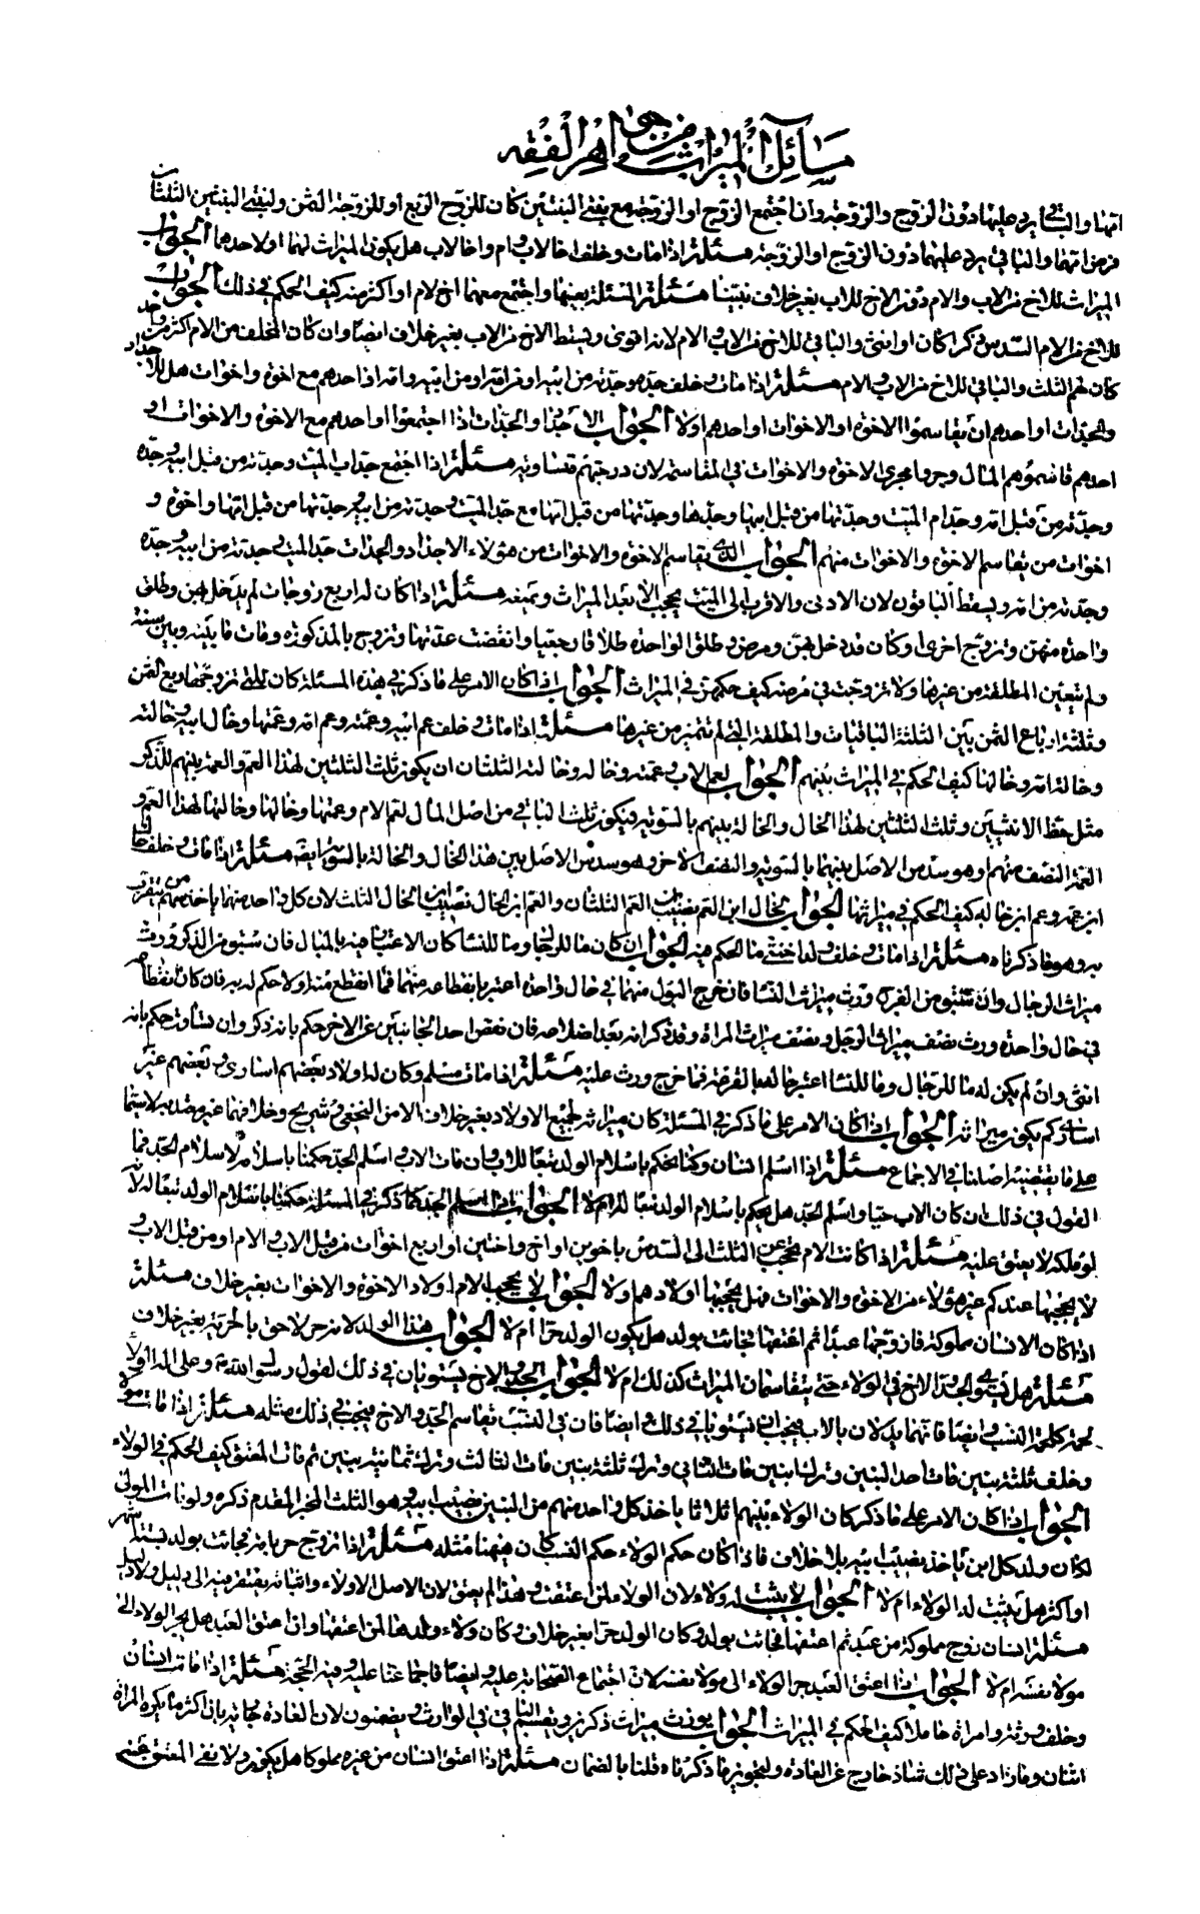 مسائل الميراث من جواهر الفقه
والباقي يرد عليها دون الزوج والزوجة وان اجتمع الزوج او الزوجة مع بنتي البنتين كان للزوج الربع او للزوجة الثمن ولبنتي البنتين الثلثان
والباقي يرد عليهما دون الزوج او الزوجة مسئلة اذا مات وخلف اخا لاب وام واخا لاب هل يكون الميراث لهما او لاحدهما الجواب
الميراث للاخ من الاب والام دون الاخ للاب بغير خلاف بيننا مسئلة المسئلة بعينها واجتمع معهما اخ لام او اكثر منه كيف الحكم في ذلك الجواب
للاخ من الام السدس ذكرا كان او انثى والباقي للاخ من الاب والام لانه اقوى ويسقط الاخ من الاب بغير خلاف ايضا وان كان المخلف من الام اكثر من واحد
كان لهم الثلث والباقي للاخ من الاب والام مسئلة اذا مات وخلف جده وجدته من ابيه او من امه او من ابيه وامه او احدهم مع اخوة واخوات هل للاجداد
والجدات او احدهم ان يقاسموا الاخوة او الاخوات او احدهم اولا الجواب الاجداد والجدات اذا اجتمعوا او احدهم مع الاخوة والاخوات او
احدهم قاسموهم المال وجروا مجرى الاخوة والاخوات في المقاسمة لان درجتهم متساوية مسئلة اذا اجتمع جد اب الميت وجدته من قبل ابيه وجده
وجدته من قبل امه وجد ام الميت وجدتها من قبل ابيها وجدها وجدتها من قبل امها مع جد الميت وجدته من ابيه وجده وجدته من قبل امه واخوة و
اخوات من يقاسم الاخوة والاخوات منهم الجواب الذي يقاسم الاخوة والاخوات من هؤلاء الاجداد والجدات جد الميت وجدته من ابيه وجده
وجدته من امه ويسقط الباقون لان الادنى والاقرب الى الميت يحجب الابعد الميراث ويمنعه مسئلة اذا كان له اربع زوجات لم يدخل بهن وطلق
واحدة منهن وتزوج اخرى او كان قد دخل بهن ومرض وطلق الواحدة طلاقا رجعيا وانقضت عدتها وتزوج بالمذكورة ومات ما بينه وبين سنة
ولم يتعين المطلقة من غيرها ولا تزوجت في مرضه كيف حكمهن في الميراث الجواب اذا كان الامر على ما ذكر في هذه المسئلة كان للتي تزوجها ربع الثمن
وثلثة ارباع الثمن بين الثلثة الباقيات والمطلقة التي لم تتميز من غيرها مسئلة اذا مات وخلف عم ابيه وعمته وعم امه وعمتها وخال ابيه وخالته
وخال امه وخالتها كيف الحكم في الميراث بينهم الجواب لعم الاب وعمته وخاله وخالته الثلثان ان يكون ثلث الثلثين لهذا العم والعمة بينهم للذكر
مثل حظ الانثيين وثلث الثلثين لهذا الخال والخالة بينهم بالسوية ويكون ثلث الباقي من اصل المال لعم الام وعمتها وخالها وخالتها لهذا العم و
العمة النصف منهم وهو سدس الاصل بينهما بالسوية والنصف الآخر وهو سدس الاصل بين هذا الخال والخالة بالسوية ايضا مسئلة اذا مات وخلف خالا
ابن عمه وعم ابن خاله كيف الحكم في ميراثها الجواب لخال ابن العم نصيب العم الثلثان والعم ابن الخال نصيب الخال الثلث لان كل واحد منهما ياخذ سهم من يتقرب
به وهو ما ذكرناه مسئلة اذا مات وخلف ولدا خنثى ما الحكم فيه الجواب ان كان ما للرجال وما للنساء كان الاعتبار فيه بالمبال فان سبق من الذكر ورث
ميراث الرجال وان سبق من الفرج ورث ميراث النساء فان خرج البول منهما في حال واحدة اعتبر بانقطاعه منهما فما انقطع منه اولا حكم له به فان كان انقطاعهما
في حال واحدة ورث نصف ميراث الرجل ونصف ميراث المراة وقد ذكر انه يعد اضلاعه فان نقص احد الجانبين عن الاخر حكم بانه ذكر وان تساوت حكم بانه
انثى وان لم يكن له ما للرجال وما للنساء اعتبر حاله بالقرعة فما خرج ورث عليه مسئلة اذا مات مسلم وكان له اولاد بعضهم اسارى وبعضهم غير
اسارى كم يكون ميراثه الجواب اذا كان الامر على ما ذكر في المسئلة كان ميراثه لجميع الاولاد بغير خلاف الا من النخعي وشريح وخلافهما غير معتد به لا سيما
على ما يقتضيه اصلنا في الاجماع مسئلة اذا اسلم انسان وكنا نحكم باسلام الولد تبعا للاب وان مات الاب واسلم الجد حكمنا باسلامه لاسلام الجد فما
القول في ذلك ان كان الاب حيا واسلم الجد هل يحكم باسلام الولد تبعا له ام لا الجواب اذا اسلم الجد كما ذكر في المسئلة حكمنا باسلام الولد تبعا له لانه
لو ملكه لا يعتق عليه مسئلة اذا كانت الام تحجب عن الثلث الى السدس باخوين او اخ واختين او اربع اخوات من قبل الاب والام او من قبل الاب و
لا يحجبها عندكم غير هؤلاء من الاخوة والاخوات فهل يحجبها اولادهم اولا الجواب لا يحجب الام اولاد الاخوة والاخوات بغير خلاف مسئلة
اذا كان لانسان مملوكة فزوجها عبدا ثم اعتقها فجائت بولد هل يكون الولد حرا ام لا الجواب هذا الولد لانه حر لاحق بالحرية بغير خلاف
مسئلة هل يستوي الجد والاخ في الولاء حتى يتقاسمان الميراث كذلك ام لا الجواب الجد والاخ يستويان في ذلك لقول رسول الله صلى الله عليه وآله الولاء
لحمة كلحمة النسب وايضا فانهما يدلان بالاب فيجب ان يستويا في ذلك ايضا فان في النسب يقاسم الجد والاخ فيجب في ذلك مثله مسئلة اذا مات
وخلف ثلثة بنين فمات احد البنين وترك ابنين ومات الثاني وترك ثلثة بنين ومات الثالث وترك ثمانية بنين ثم مات المعتق كيف الحكم في الولاء
الجواب اذا كان الامر على ما ذكر كان الولاء بينهم اثلاثا ياخذ كل واحد منهم من البنين نصيب ابيه وهو الثلث للخبر المقدم ذكره ولو مات المولى
لكان ولد كل ابن ياخذ نصيب ابيه بلا خلاف فاذا كان حكم الولاء حكم النسب كان فيهما مثله مسئلة اذا تزوج حر بامة فجائت بولد لستة اشهر
او اكثر هل يثبت له الولاء ام لا الجواب لا يثبت له ولاء لان الولاء لمن اعتقت وهذا لم يعتق لان الاصل الا ولاء واثباته يفتقر فيه الى دليل ولا دليل
مسئلة انسان زوج مملوكة من عبد ثم اعتقها فجائت بولد وكان الولد حرا بغير خلاف وكان ولاء ولدها لمن اعتقها واذا عتق العبد هل يجر الولاء الى
مولى نفسه ام لا الجواب اذا اعتق العبد جر الولاء الى مولى نفسه لان اجتماع الصحابة عليه وايضا فاجماعنا عليه وفيه الحجة مسئلة اذا مات انسان
وخلف ورثة وامراة حاملا كيف الحكم في الميراث الجواب يوقف ميراث ذكرين ويقسم الباقي في الوارث ويضمنون لان العادة جارية بان اكثر ما يكون المراة
اثنان وما زاد على ذلك شاذ خارج عن العادة ولتجويز ما ذكرناه قلنا بالضمان مسئلة اذا اعتق انسان من غيره مملوكا هل يكون ولاؤه للمعتق عنه